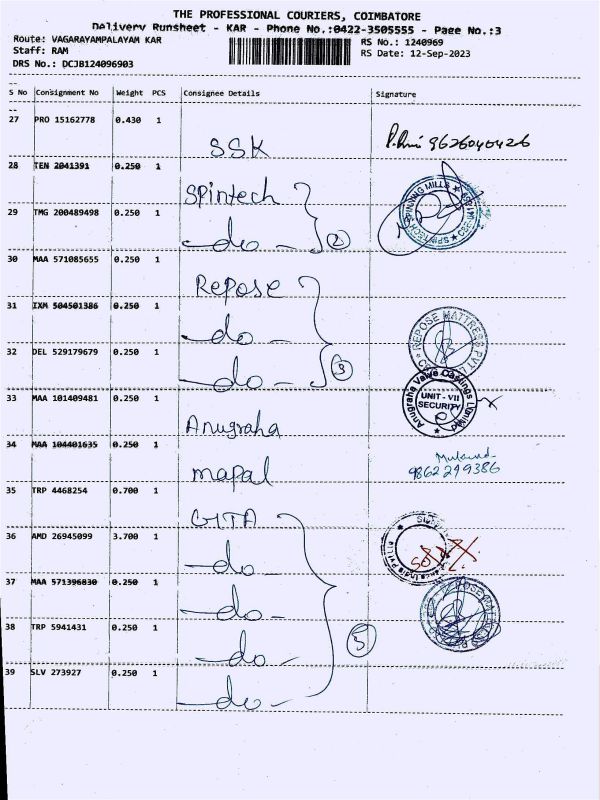 THE PROFESSIONAL COURIERS, COIMBATORE
Delivery Runsheet - KAR - Phone No.:0422-3505555 - Page No.:3
Route: VAGARAYAMPALAYAM KAR
RS No.: 1240969
Staff: RAM
RS Date: 12-Sep-2023
DRS No.: DCJB124096903
S No Consignment No Weight PCS Consignee Details Signature
27 PRO 15162778 0.430 1
SSK 9626040426
28 TEN 2041391 0.250 1
Spintech
29 TMG 200489498 0.250 1
-do- 2
SPINNING MILLS
30 MAA 571085655 0.250 1
Repose
31 IXM 504501386 0.250 1
-do-
REPOSE MATTRESS PVT
32 DEL 529179679 0.250 1
-do- 3
33 MAA 101409481 0.250 1
Anugraha
Anugraha Valve Castings Limited
UNIT - VII
SECURITY
34 MAA 104401635 0.250 1
mapal
9862299386
35 TRP 4468254 0.700 1
GITA
36 AMD 26945099 3.700 1
-do-
37 MAA 571396830 0.250 1
-do-
38 TRP 5941431 0.250 1
-do- 5
39 SLV 273927 0.250 1
-do-